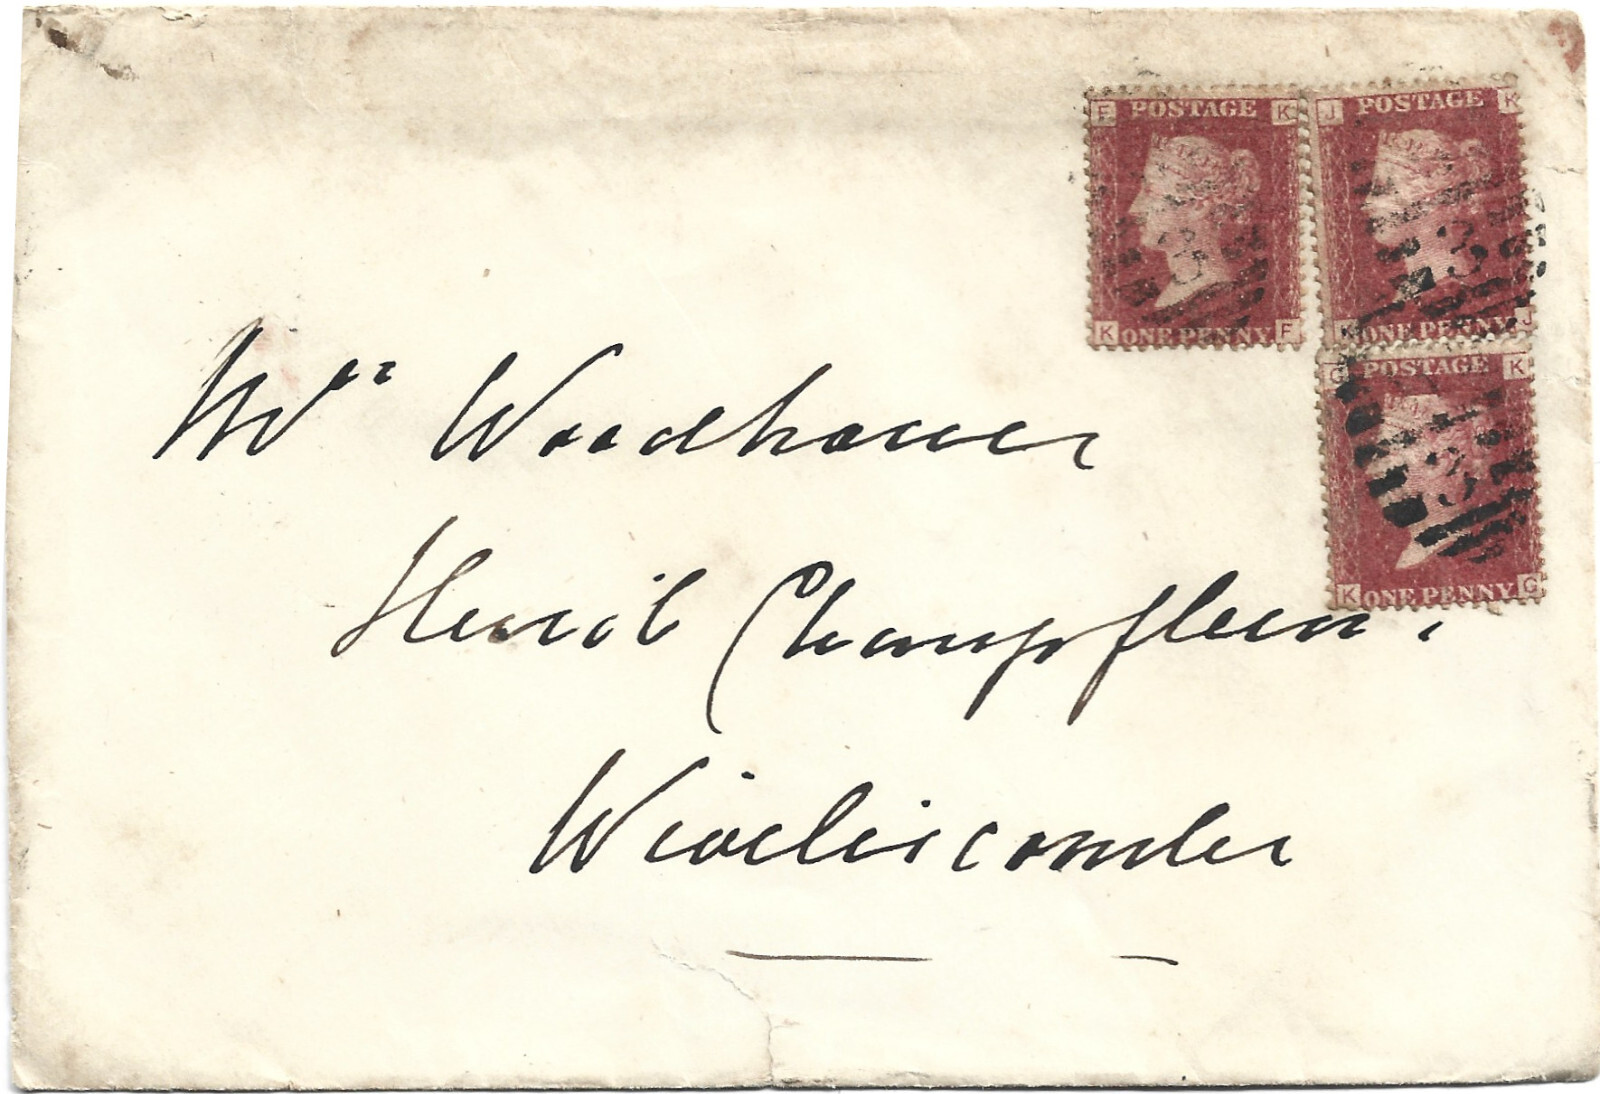 F POSTAGE K
K ONE PENNY F
J POSTAGE K
K ONE PENNY J
G POSTAGE K
K ONE PENNY G
3
3
3
Mrs Woodhouse
Huish Champflower
Wiveliscombe